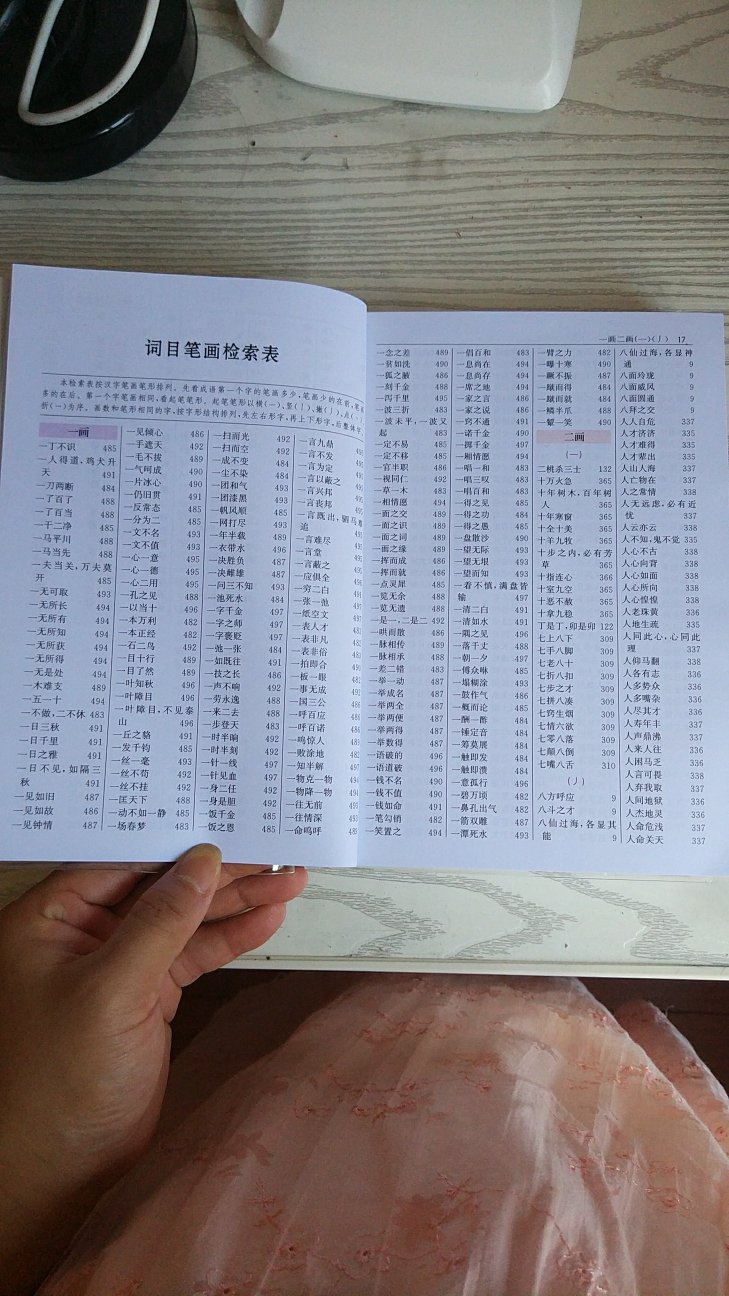 词目笔画检索表
本检索表按汉字笔画笔形排列。先看成语第一个字的笔画多少,笔画少的在前,笔画
多的在后。第一个字笔画相同,看起笔笔形。起笔笔形以横(一)、竖(丨)、撇(丿)、点(丶)、
折(㇕)为序。画数和笔形相同的字,按字形结构排列,先左右形字,再上下形字,后整体字。
一画
一丁不识 485
一人得道,鸡犬升
天 491
一刀两断 484
一了百了 488
一了百当 488
一干二净 485
一马平川 488
一马当先 488
一夫当关,万夫莫
开 485
一无可取 493
一无所长 494
一无所有 494
一无所知 494
一无所获 494
一无所得 494
一无是处 494
一木难支 489
一五一十 494
一不做,二不休 483
一日三秋 491
一日千里 491
一日之雅 491
一日不见,如隔三
秋 491
一见如旧 487
一见如故 486
一见钟情 487
一见倾心 486
一手遮天 492
一毛不拔 489
一气呵成 490
一片冰心 490
一仍旧贯 491
一反常态 485
一分为二 485
一文不名 493
一文不值 493
一心一意 495
一心一德 495
一心二用 495
一孔之见 488
一以当十 496
一本万利 482
一本正经 482
一石二鸟 492
一目十行 489
一目了然 489
一叶知秋 496
一叶障目 496
一叶障目,不见泰
山 496
一丘之貉 491
一发千钧 485
一丝一毫 493
一丝不苟 492
一丝不挂 492
一匡天下 488
一动不如一静 485
一场春梦 483
一扫而光 492
一扫而空 492
一成不变 484
一尘不染 484
一团和气 493
一团漆黑 493
一帆风顺 485
一网打尽 493
一年半载 489
一衣带水 496
一决胜负 487
一决雌雄 487
一问三不知 493
一池死水 484
一字千金 497
一字之师 497
一字褒贬 497
一张一弛
一如既往 491
一技之长 486
一声不响 492
一劳永逸 488
一来二去 488
一步登天 483
一时半晌 492
一时半刻 492
一针一线 497
一针见血 497
一身二任 492
一身是胆 492
一饭千金 485
一饭之恩 485
一言九鼎
一言不发
一言为定
一言以蔽之
一言兴邦
一言丧邦
一言既出,驷马难
追
一言难尽
一言堂
一言蔽之
一应俱全
一穷二白
一张一弛
一纸空文
一表人才
一表非凡
一表非俗
一拍即合
一板一眼
一事无成
一国三公
一呼百应
一呼百诺
一鸣惊人
一败涂地
一知半解
一物克一物
一物降一物
一往无前
一往情深
一命呜呼
一画二画(一)(丿) 17
一念之差 489
一贫如洗 490
一狐之腋 486
一刻千金 488
一泻千里 495
一波三折 483
一波未平,一波又
起 483
一定不易 485
一定不移 485
一官半职 486
一视同仁 492
一草一木 483
一相情愿 494
一面之交 489
一面之识 489
一面之词 489
一面之缘 489
一挥而成 486
一挥而就 486
一点灵犀 485
一览无余 488
一览无遗 488
一是一,二是二 492
一哄而散 486
一脉相传 489
一脉相承 488
一差二错 483
一举一动 487
一举成名 487
一举两全 487
一举两便 487
一举两得 487
一举数得 487
一语破的 496
一语道破 496
一钱不名 490
一钱不值 490
一钱如命 491
一笔勾销 482
一笑置之 494
一倡百和 483
一息尚存 494
一息尚存 494
一席之地 494
一家之言 486
一家之说 486
一窍不通 491
一诺千金 490
一掷千金 497
一厢情愿 494
一唱一和 483
一唱三叹 483
一唱百和 483
一得之见 485
一得之功 484
一得之愚 485
一盘散沙 490
一望无际 493
一望无垠 493
一望而知 493
一着不慎,满盘皆
输 497
一清二白 491
一清如水 491
一隅之见 496
一落千丈 488
一朝一夕 497
一傅众咻 485
一塌糊涂 493
一鼓作气 486
一概而论 485
一酬一酢 484
一锤定音 484
一筹莫展 484
一触即发 484
一触即溃 484
一意孤行 496
一碧万顷 482
一鼻孔出气 482
一箭双雕 487
一潭死水 493
一臂之力 482
一曝十寒 490
一蹶不振 487
一蹴而得 484
一蹴而就 484
一鳞半爪 488
一颦一笑 490
二画
(一)
二桃杀三士 132
十万火急 365
十年树木,百年树
人 365
十年寒窗 365
十全十美 365
十羊九牧 365
十步之内,必有芳
草 365
十指连心 366
十室九空 365
十恶不赦 365
十拿九稳 365
丁是丁,卯是卯 122
七上八下 309
七手八脚 309
七老八十 309
七折八扣 309
七步之才 309
七拼八凑 309
七窍生烟 309
七情六欲 309
七零八落 309
七颠八倒 309
七嘴八舌 310
(丿)
八方呼应 9
八斗之才 9
八仙过海,各显其
能 9
八仙过海,各显神
通 9
八面玲珑 9
八面威风 9
八面圆通 9
八拜之交 9
人人自危 337
人才济济 335
人才难得 335
人才辈出 335
人山人海 337
人亡物在 337
人之常情 338
人无远虑,必有近
忧 337
人云亦云 338
人不知,鬼不觉 335
人心不古 338
人心向背 338
人心如面 338
人心所向 338
人心惶惶 338
人老珠黄 336
人地生疏 335
人同此心,心同此
理 337
人仰马翻 338
人各有志 336
人多势众 336
人多嘴杂 336
人尽其才 336
人寿年丰 337
人声鼎沸 337
人来人往 336
人困马乏 336
人言可畏 338
人弃我取 337
人间地狱 336
人杰地灵 336
人命危浅 337
人命关天 337